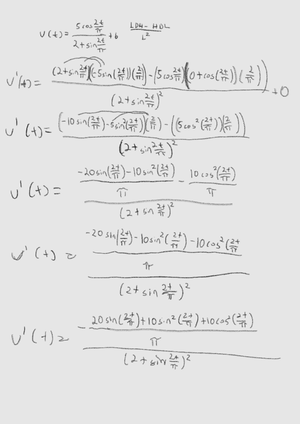 v(t) = 5cos(2t/π) / 2+sin(2t/π) + 6    LDH - HDL / L²
v'(t) = (2+sin(2t/π))(-5sin(2t/π))(2/π) - (5cos(2t/π))(0+cos(2t/π))(2/π) / (2+sin 2t/π)² + 0
v'(t) = (-10sin(2t/π) - 5sin²(2t/π))(2/π) - ((5cos²(2t/π))(2/π)) / (2+sin 2t/π)²
v'(t) = -20sin(2t/π) - 10sin²(2t/π) / π - 10cos²(2t/π) / π / (2+sin 2t/π)²
v'(t) = -20sin(2t/π) - 10sin²(2t/π) - 10cos²(2t/π / π / (2+sin 2t/π)²
v'(t) = - 20sin(2t/π) + 10sin²(2t/π) + 10cos²(2t/π) / π / (2+sin 2t/π)²